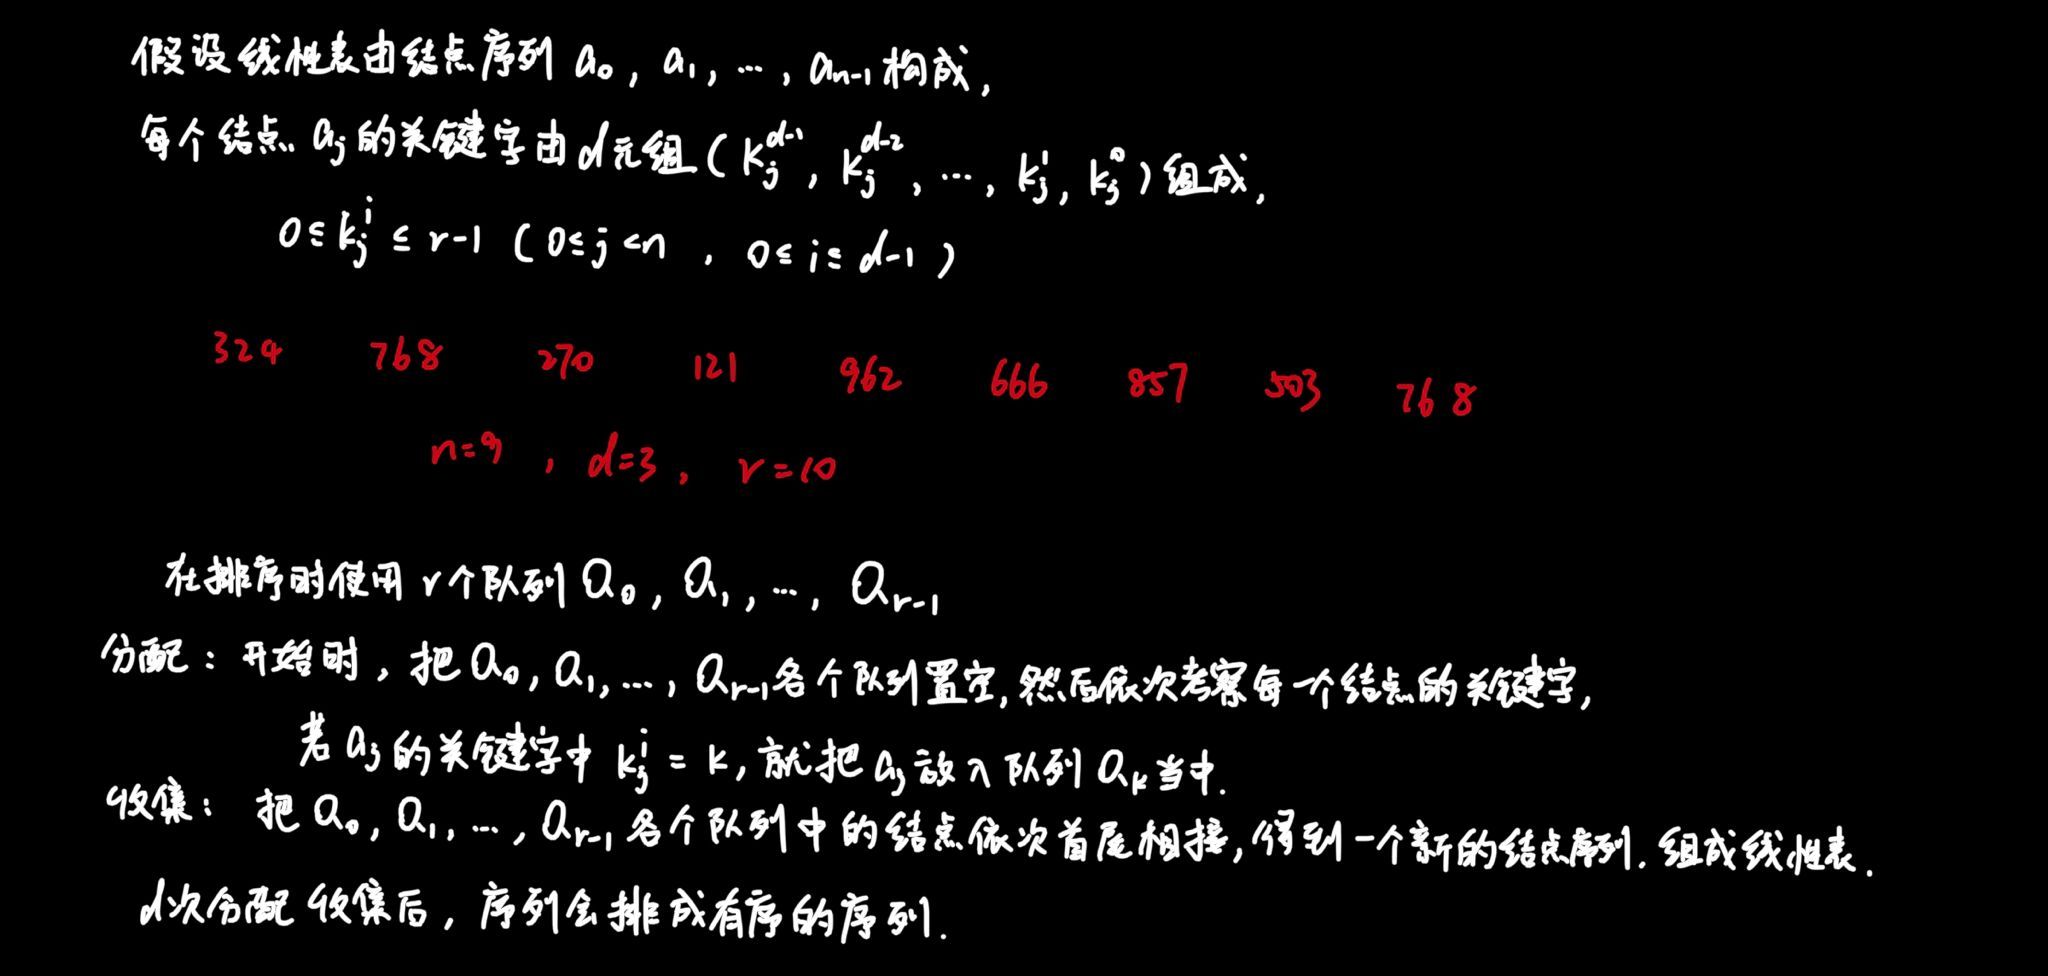 假设线性表由结点序列 a₀, a₁, …, aₙ₋₁ 构成,
每个结点 aⱼ 的关键字由d元组 ( kⱼᵈ⁻¹, kⱼᵈ⁻², …, kⱼ¹, kⱼ⁰ ) 组成,
0≤kⱼⁱ≤r-1 ( 0≤j<n , 0≤i≤d-1 )
324 768 270 121 962 666 857 503 768
n=9 , d=3 , r=10
在排序时使用 r个队列 Q₀, Q₁, …, Qᵣ₋₁
分配: 开始时, 把 Q₀, Q₁, …, Qᵣ₋₁各个队列置空, 然后依次考察每一个结点的关键字,
若 aⱼ 的关键字中 kⱼⁱ = k, 就把 aⱼ 放入队列 Qₖ 当中.
收集: 把 Q₀, Q₁, …, Qᵣ₋₁ 各个队列中的结点依次首尾相接, 得到一个新的结点序列. 组成线性表.
d次分配 收集后, 序列会排成有序的序列.